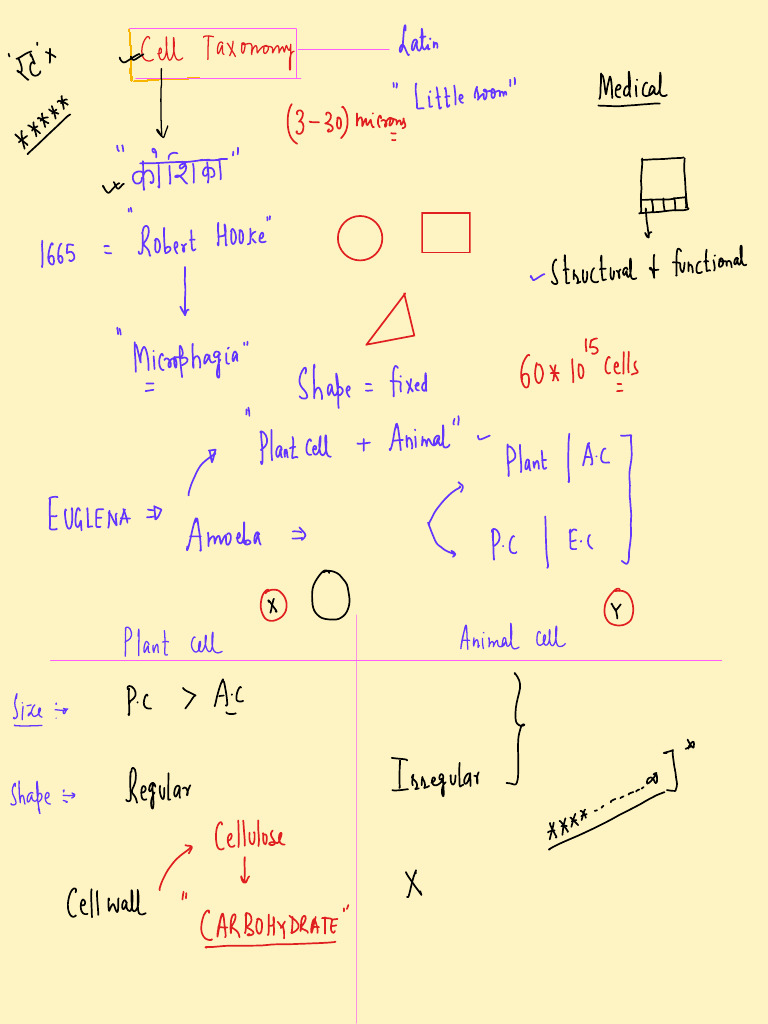 "रटे" x
Cell Taxonomy
Latin
"Little room"
*****
(3-30) microns
Medical
"कोशिका"
1665 = "Robert Hooke"
Structural + functional
"Microphagia"
Shape = fixed
60*10^15 Cells
"Plant cell + Animal"
Plant | A.C
EUGLENA ⇒
Amoeba ⇒
P.C | E.C
X
Y
Plant cell
Animal cell
Size :→
P.C > A.C
Shape :→
Regular
Irregular
****------∞]*
Cellulose
Cell wall
X
"CARBOHYDRATE"